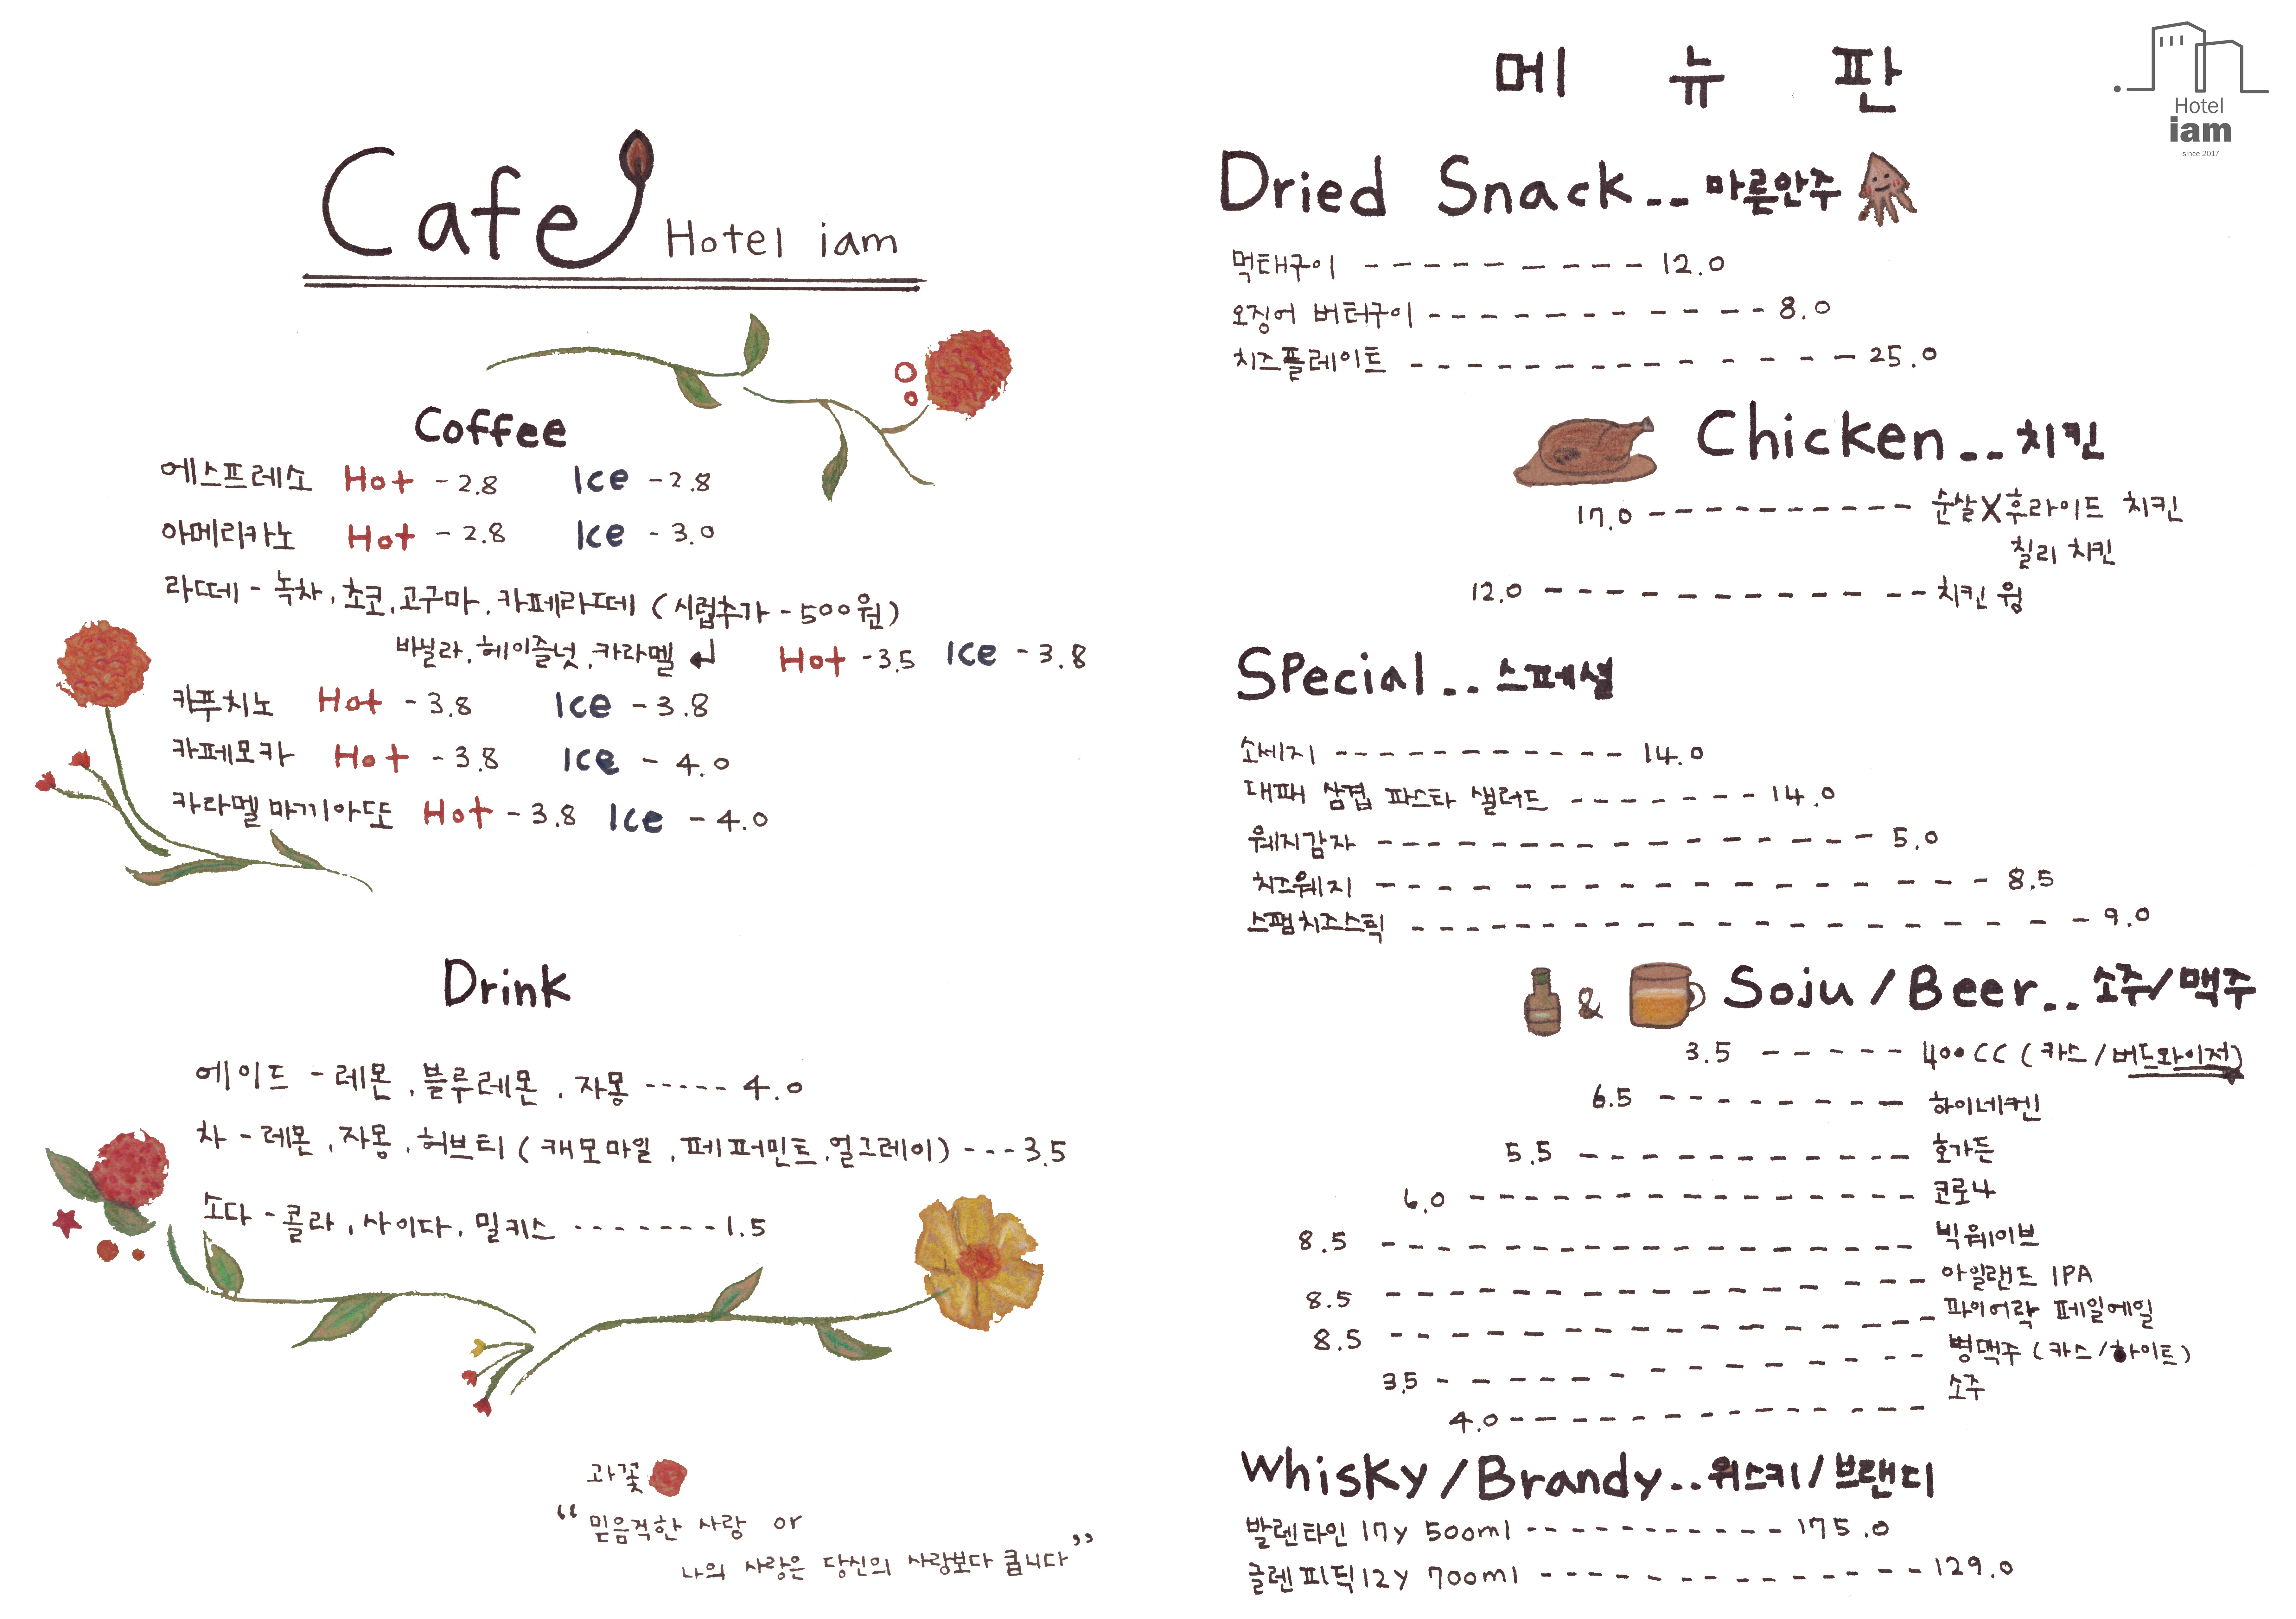 Cafe Hotel iam
Coffee
에스프레소 Hot - 2.8 Ice - 2.8
아메리카노 Hot - 2.8 Ice - 3.0
라떼 - 녹차, 초코, 고구마, 카페라떼 (시럽추가 - 500원)
바닐라, 헤이즐넛, 카라멜 ↲ Hot - 3.5 Ice - 3.8
카푸치노 Hot - 3.8 Ice - 3.8
카페모카 Hot - 3.8 Ice - 4.0
카라멜마끼아또 Hot - 3.8 Ice - 4.0
Drink
에이드 - 레몬, 블루레몬, 자몽 ----- 4.0
차 - 레몬, 자몽, 허브티 (캐모마일, 페퍼민트, 얼그레이) --- 3.5
소다 - 콜라, 사이다, 밀키스 ------- 1.5
과꽃
“믿음직한 사랑 or
나의 사랑은 당신의 사랑보다 큽니다”
메 뉴 판
Hotel
iam
since 2017
Dried Snack.. 마른안주
먹태구이 ---------- 12.0
오징어 버터구이 ------------ 8.0
치즈플레이트 --------------- 25.0
Chicken.. 치킨
17.0 ---------- 순살X후라이드 치킨
칠리 치킨
12.0 ------------ 치킨 윙
Special.. 스페셜
소세지 ----------- 14.0
대패 삼겹 파스타 샐러드 ------- 14.0
웨지감자 ---------------- 5.0
치즈웨지 ------------------ 8.5
스팸치즈스틱 --------------------- 9.0
& Soju/Beer.. 소주/맥주
3.5 ----- 400CC (카스/버드와이저)
6.5 -------- 하이네켄
5.5 ----------- 호가든
6.0 --------------- 코로나
8.5 ------------------ 빅웨이브
8.5 ----------------- 아일랜드 IPA
8.5 ------------------ 파이어락 페일에일
3.5 --------------- 병맥주 (카스/하이트)
4.0 -------------- 소주
Whisky/Brandy.. 위스키/브랜디
발렌타인 17y 500ml ----------- 175.0
글렌피딕 12y 700ml -------------- 129.0